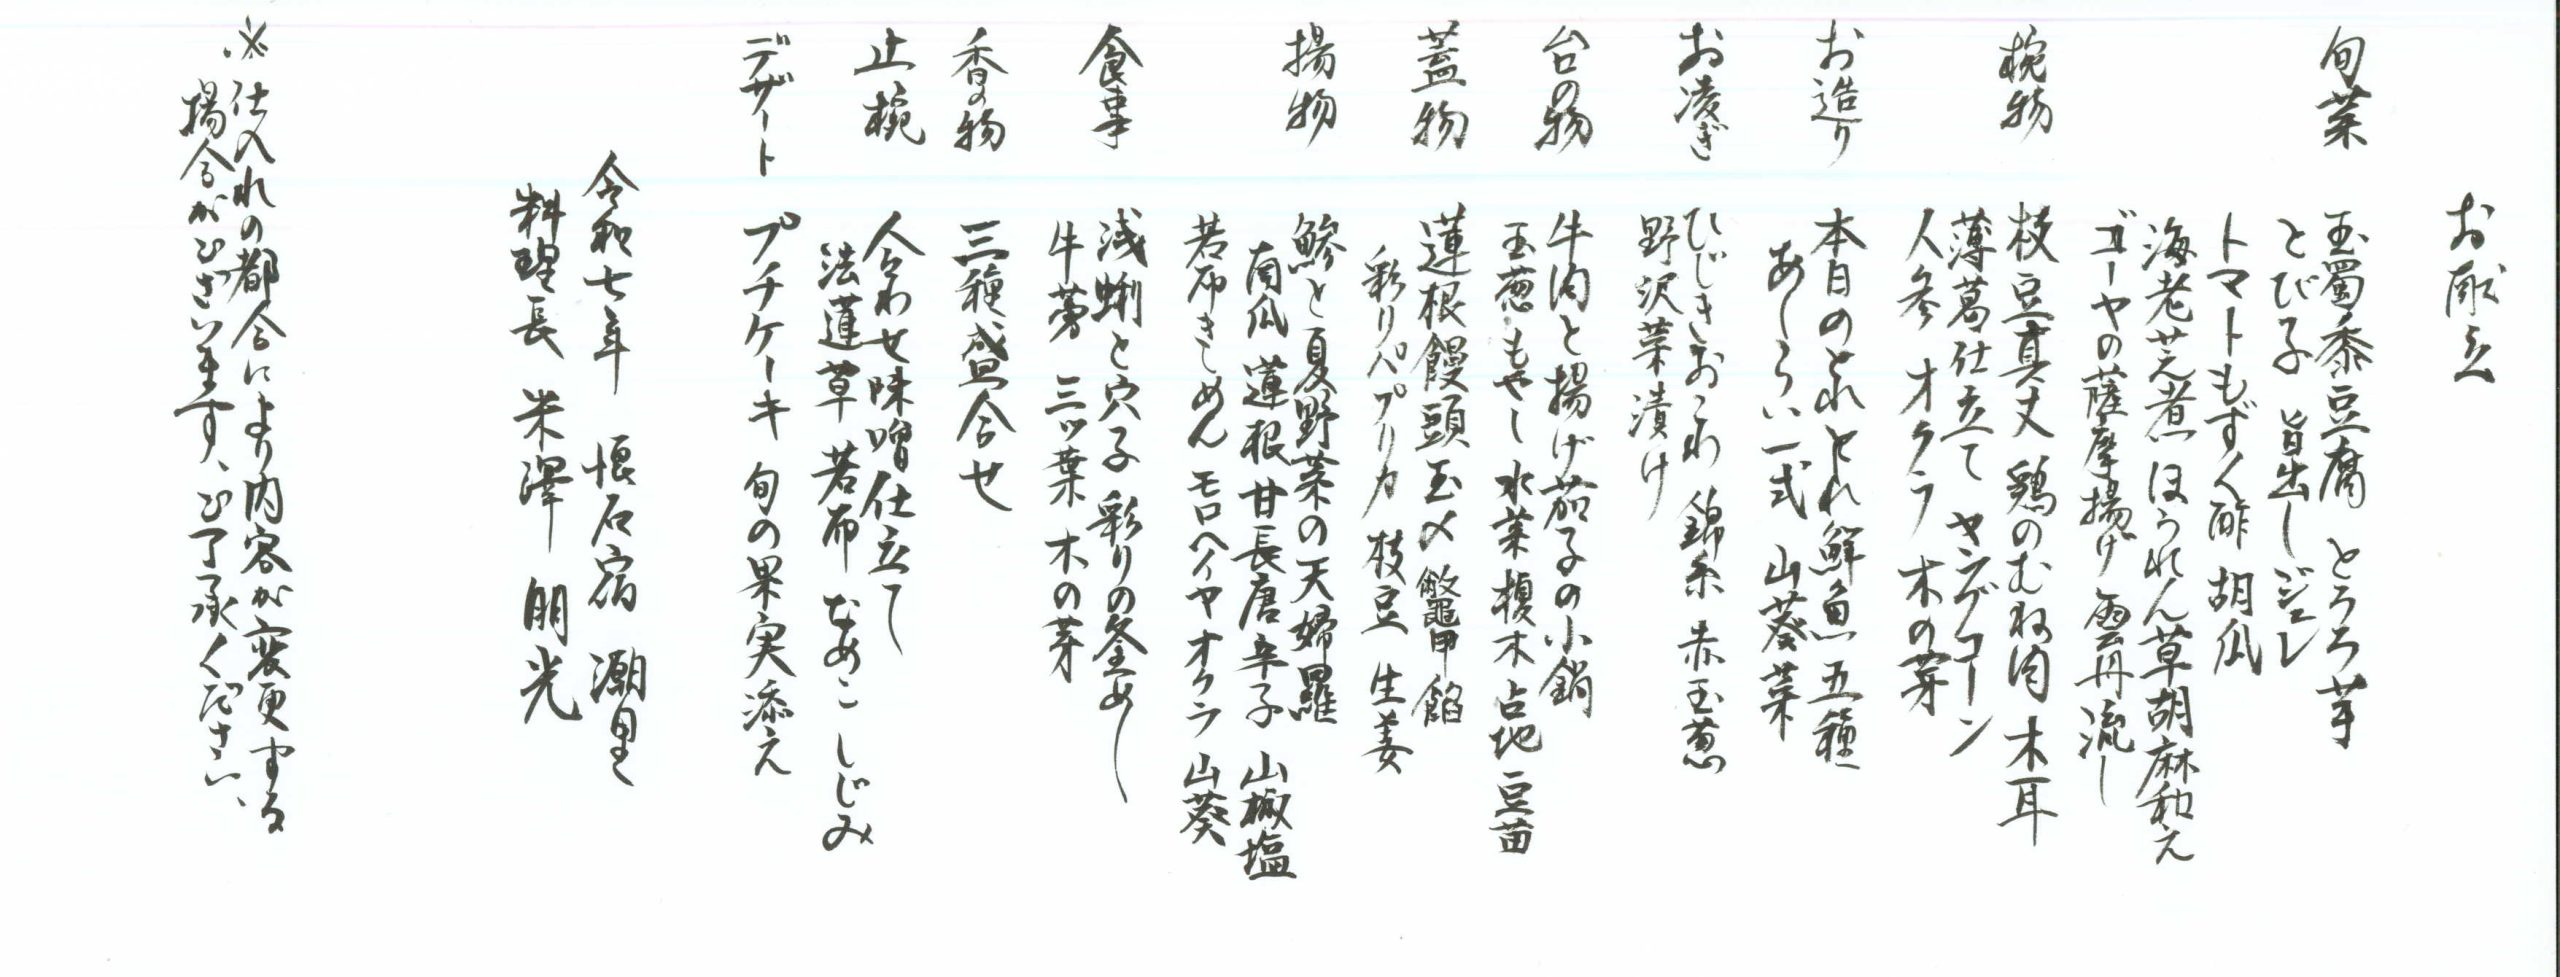 お献立
旬菜 玉蜀黍豆腐 とろろ芋
とび子 旨出しジュレ
トマトもずく酢 胡瓜
海老芝煮 ほうれん草胡麻和え
ゴーヤの薩摩揚げ 雲丹流し
椀物 枝豆真丈 鶏のむね肉 木耳
薄葛仕立て ヤングコーン
人参 オクラ 木の芽
お造り 本日のとれとれ鮮魚五種
あしらい一式 山葵菜
お凌ぎ ひじきおこわ 錦糸 赤玉葱
野沢菜漬け
台の物 牛肉と揚げ茄子の小鍋
玉葱 もやし 水菜 榎木 占地 豆苗
蓋物 蓮根饅頭 玉〆 鼈甲餡
彩りパプリカ 枝豆 生姜
揚物 鯵と夏野菜の天婦羅
南瓜 蓮根 甘長唐辛子 山椒塩
若布きしめん モロヘイヤ オクラ 山葵
食事 浅蜊と穴子 彩りの釜めし
牛蒡 三ッ葉 木の芽
香の物 三種盛合せ
止椀 合わせ味噌仕立て
法蓮草 若布 なめこ しじみ
デザート プチケーキ 旬の果実添え
令和七年 恨石宿 潮里
料理長 米澤 朋光
※仕入れの都合により内容が変更する
場合がございます、ご了承ください、